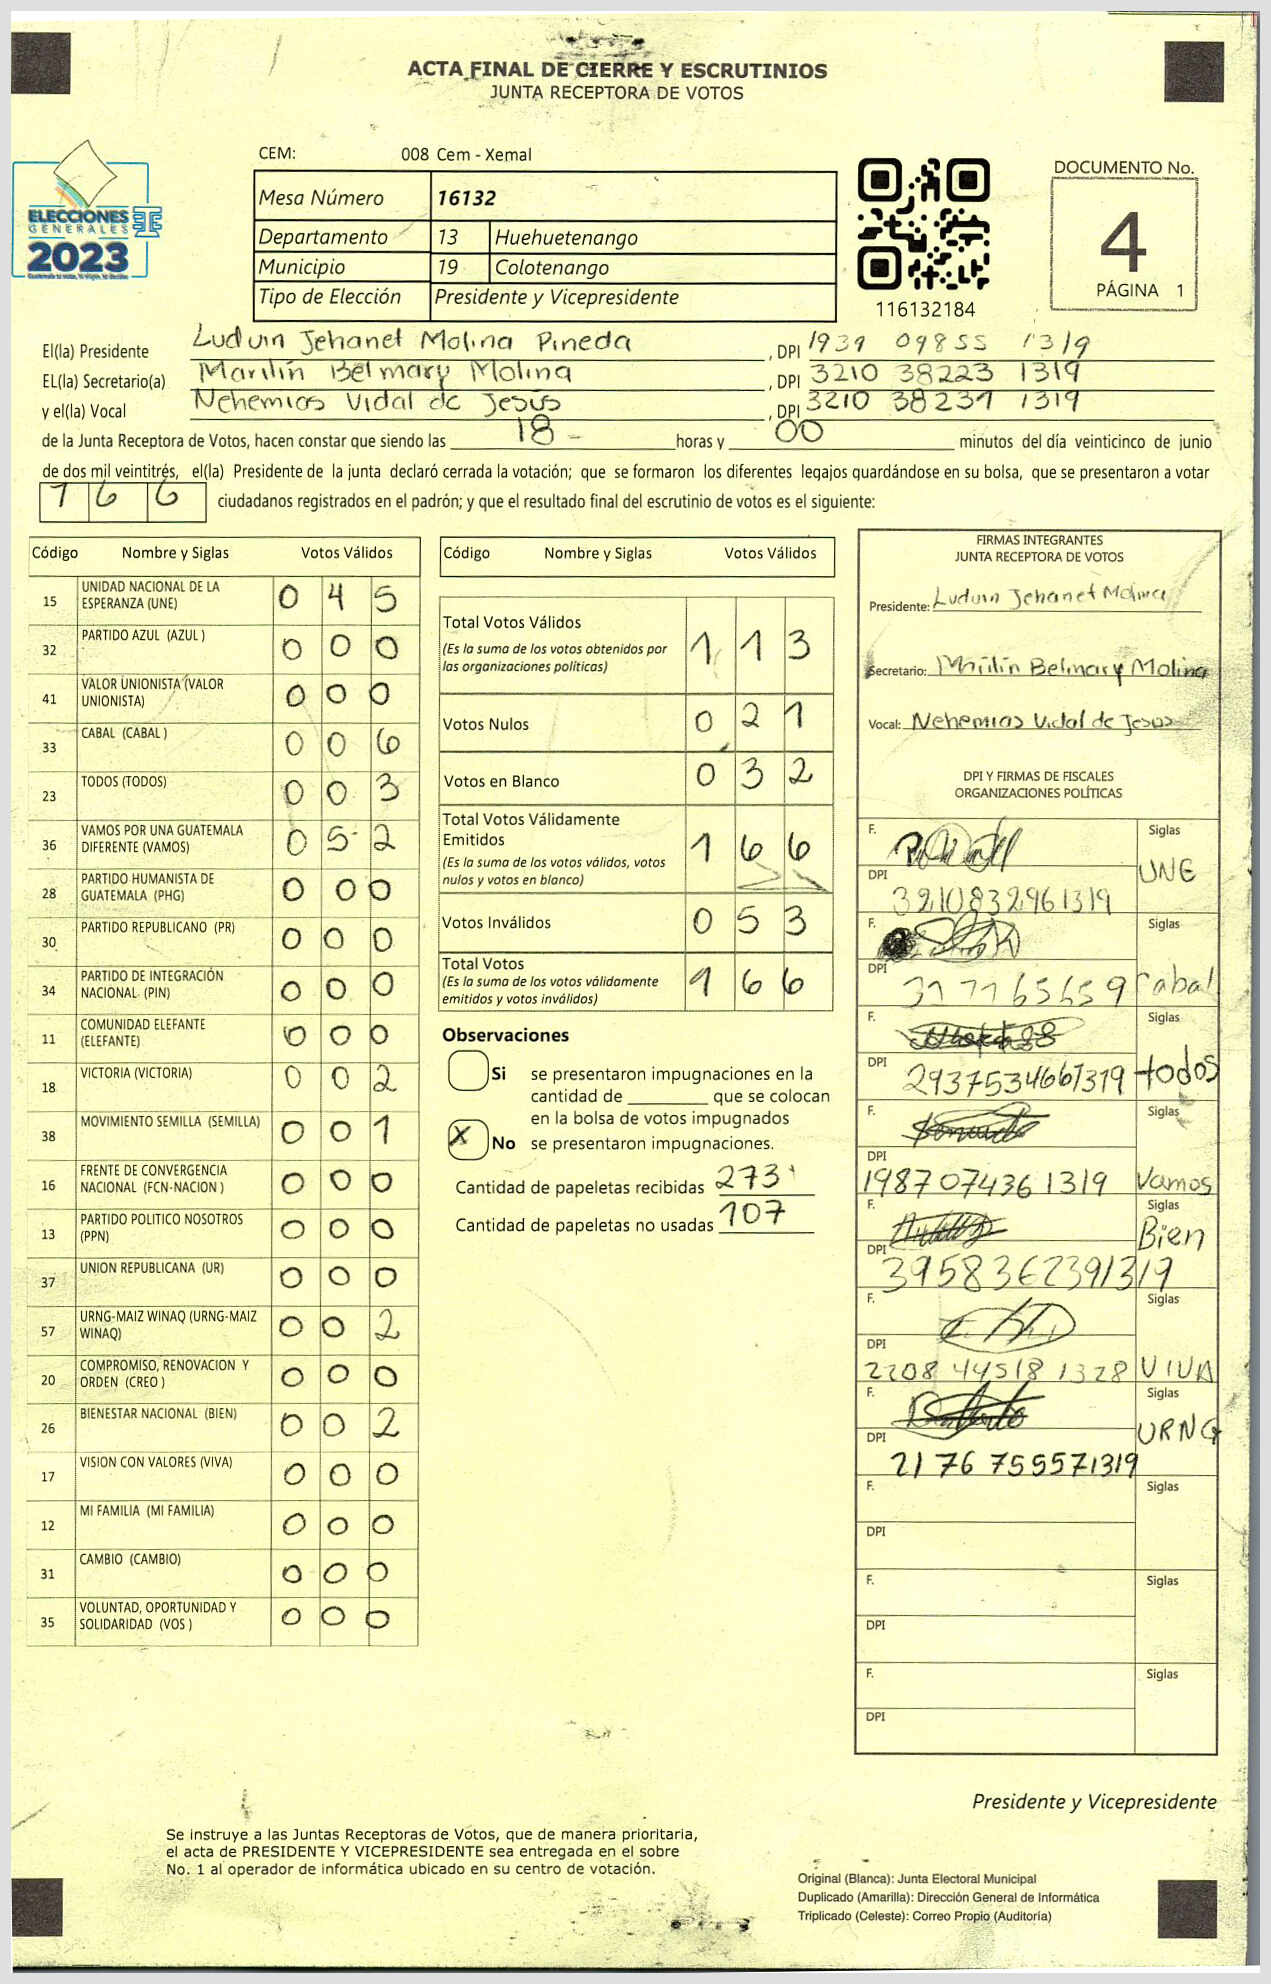 ACTA FINAL DE CIERRE Y ESCRUTINIOS
JUNTA RECEPTORA DE VOTOS
CEM: 008 Cem - Xemal
ELECCIONES
GENERALES
2023
Mesa Número 16132
Departamento 13 Huehuetenango
Municipio 19 Colotenango
Tipo de Elección Presidente y Vicepresidente
116132184
DOCUMENTO No.
4
PÁGINA 1
El(la) Presidente Luduin Jehanet Molina Pineda, DPI 1939 09855 1319
EL(la) Secretario(a) Marilín Belmary Molina, DPI 3210 38223 1319
y el(la) Vocal Nehemias Vidal de Jesús, DPI 3210 38231 1319
de la Junta Receptora de Votos, hacen constar que siendo las 18 - horas y 00 minutos del día veinticinco de junio
de dos mil veintitrés, el(la) Presidente de la junta declaró cerrada la votación; que se formaron los diferentes legajos guardándose en su bolsa, que se presentaron a votar
166 ciudadanos registrados en el padrón; y que el resultado final del escrutinio de votos es el siguiente:
Código Nombre y Siglas Votos Válidos
15 UNIDAD NACIONAL DE LA ESPERANZA (UNE) 0 4 5
32 PARTIDO AZUL (AZUL ) 0 0 0
41 VALOR UNIONISTA (VALOR UNIONISTA) 0 0 0
33 CABAL (CABAL ) 0 0 6
23 TODOS (TODOS) 0 0 3
36 VAMOS POR UNA GUATEMALA DIFERENTE (VAMOS) 0 5 2
28 PARTIDO HUMANISTA DE GUATEMALA (PHG) 0 0 0
30 PARTIDO REPUBLICANO (PR) 0 0 0
34 PARTIDO DE INTEGRACIÓN NACIONAL (PIN) 0 0 0
11 COMUNIDAD ELEFANTE (ELEFANTE) 0 0 0
18 VICTORIA (VICTORIA) 0 0 2
38 MOVIMIENTO SEMILLA (SEMILLA) 0 0 1
16 FRENTE DE CONVERGENCIA NACIONAL (FCN-NACION ) 0 0 0
13 PARTIDO POLITICO NOSOTROS (PPN) 0 0 0
37 UNION REPUBLICANA (UR) 0 0 0
57 URNG-MAIZ WINAQ (URNG-MAIZ WINAQ) 0 0 2
20 COMPROMISO, RENOVACION Y ORDEN (CREO ) 0 0 0
26 BIENESTAR NACIONAL (BIEN) 0 0 2
17 VISION CON VALORES (VIVA) 0 0 0
12 MI FAMILIA (MI FAMILIA) 0 0 0
31 CAMBIO (CAMBIO) 0 0 0
35 VOLUNTAD, OPORTUNIDAD Y SOLIDARIDAD (VOS ) 0 0 0
Código Nombre y Siglas Votos Válidos
Total Votos Válidos 1 1 3
(Es la suma de los votos obtenidos por las organizaciones políticas)
Votos Nulos 0 2 1
Votos en Blanco 0 3 2
Total Votos Válidamente Emitidos 1 6 6
(Es la suma de los votos válidos, votos nulos y votos en blanco)
Votos Inválidos 0 5 3
Total Votos 1 6 6
(Es la suma de los votos válidamente emitidos y votos inválidos)
Observaciones
Si se presentaron impugnaciones en la
cantidad de ________ que se colocan
en la bolsa de votos impugnados
X No se presentaron impugnaciones.
Cantidad de papeletas recibidas 273
Cantidad de papeletas no usadas 107
FIRMAS INTEGRANTES
JUNTA RECEPTORA DE VOTOS
Presidente: Luduin Jehanet Molina
Secretario: Marilín Belmary Molina
Vocal: Nehemias Vidal de Jesús
DPI Y FIRMAS DE FISCALES
ORGANIZACIONES POLÍTICAS
F. Siglas UNE
DPI 3210832961319
F. Siglas Cabal
DPI 317165659
F. Siglas todos
DPI 2937534661319
F. Siglas Vamos
DPI 1987074361319
F. Siglas Bien
DPI 3958362391319
F. Siglas VIVA
DPI 2208 44518 1328
F. Siglas URNG
DPI 2176 755571319
F. Siglas
DPI
F. Siglas
DPI
F. Siglas
DPI
Presidente y Vicepresidente
Se instruye a las Juntas Receptoras de Votos, que de manera prioritaria,
el acta de PRESIDENTE Y VICEPRESIDENTE sea entregada en el sobre
No. 1 al operador de informática ubicado en su centro de votación.
Original (Blanca): Junta Electoral Municipal
Duplicado (Amarilla): Dirección General de Informática
Triplicado (Celeste): Correo Propio (Auditoría)